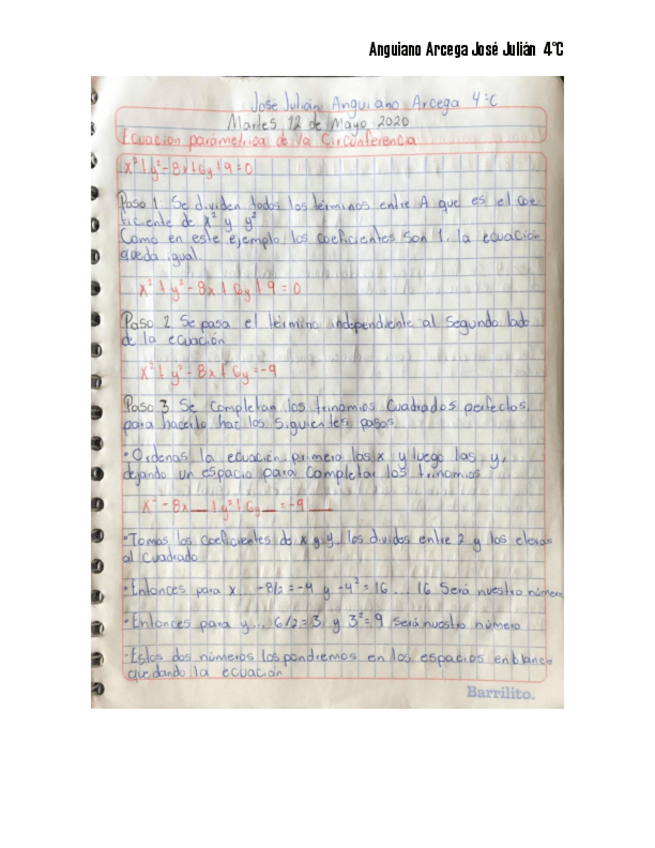 Anguiano Arcega José Julián 4°C
José Julián Anguiano Arcega 4°C
Martes 12 de Mayo 2020
Ecuación paramétrica de la Circunferencia
x²+y²-8x+6y+9=0
Paso 1. Se dividen todos los términos entre A que es el coe-
ficiente de x² y y²
Como en este ejemplo los coeficientes son 1, la ecuación
queda igual.
x²+y²-8x+6y+9=0
Paso 2. Se pasa el término independiente al segundo lado
de la ecuación
x²+y²-8x+6y=-9
Paso 3. Se completan los trinomios cuadrados perfectos,
para hacerlo haz los siguientes pasos
•Ordenas la ecuación, primero las x y luego las y,
dejando un espacio para completar los trinomios
x²-8x__+y²+6y__=-9 __
•Tomas los coeficientes de x y y, los divides entre 2 y los elevas
al cuadrado
•Entonces para x... -8/2=-4 y -4²=16 ... 16 Será nuestro número
•Entonces para y... 6/2=3, y 3²=9 será nuestro número
•Estos dos números los pondremos en los espacios en blanco
quedando la ecuación
Barrilito.